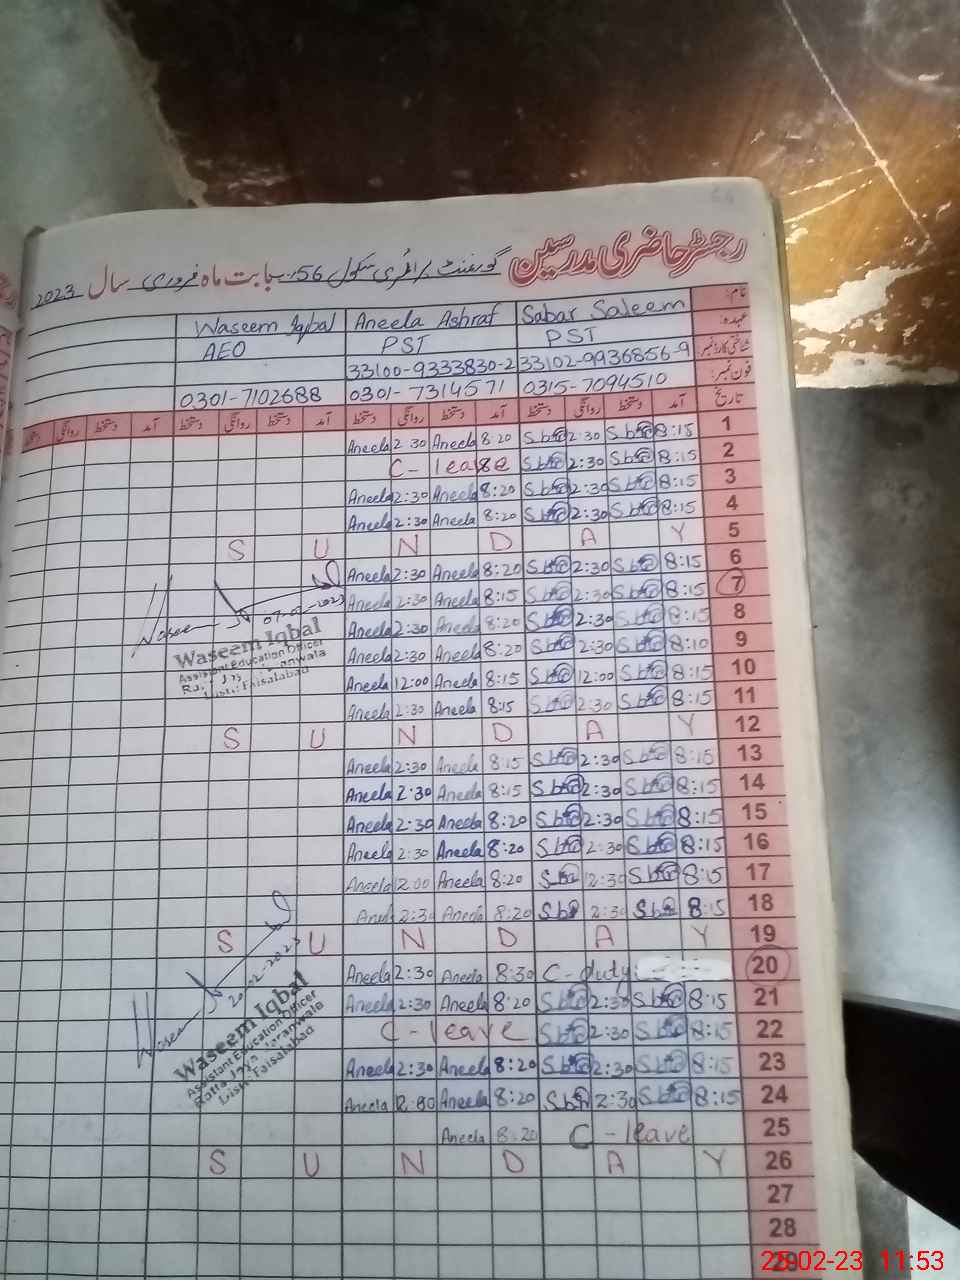 رجسٹر حاضری مدرسین گورنمنٹ پرائمری سکول 56 بابت ماہ فروری سال 2023
نام: Sabar Saleem Aneela Ashraf Waseem Iqbal
عہدہ: PST PST AEO
شناختی کارڈ نمبر: 33102-9936856-9 33100-9333830-2
فون نمبر: 0315-7094510 0301-7314571 0301-7102688
تاریخ آمد دستخط روانگی دستخط آمد دستخط روانگی دستخط آمد دستخط روانگی دستخط آمد دستخط روانگی دستخط
Aneela 2:30 Aneela 8:20 2:30 8:15 1
C-leave 2:30 8:15 2
Aneela 2:30 Aneela 8:20 2:30 8:15 3
Aneela 2:30 Aneela 8:20 2:30 8:15 4
S U N D A Y 5
Aneela 2:30 Aneela 8:20 2:30 8:15 6
Aneela 2:30 Aneela 8:15 2:30 8:15 7
Aneela 2:30 Aneela 8:20 2:30 8:15 8
Aneela 2:30 Aneela 8:20 2:30 8:10 9
Aneela 12:00 Aneela 8:15 12:00 8:15 10
Aneela 2:30 Aneela 8:15 2:30 8:15 11
S U N D A Y 12
Aneela 2:30 Aneela 8:15 2:30 8:15 13
Aneela 2:30 Aneela 8:15 2:30 8:15 14
Aneela 2:30 Aneela 8:20 2:30 8:15 15
Aneela 2:30 Aneela 8:20 2:30 8:15 16
Aneela 12:00 Aneela 8:20 12:30 8:15 17
2:30 Aneela 8:20 2:30 8:15 18
S U N D A Y 19
Aneela 2:30 Aneela 8:30 C-duty 20
Aneela 2:30 Aneela 8:20 2:30 8:15 21
C-leave 2:30 8:15 22
Aneela 2:30 Aneela 8:20 2:30 8:15 23
Aneela Aneela 8:20 2:30 8:15 24
Aneela 8:20 C-leave 25
S U N D A Y 26
27
28
29
Waseem
07-02-2023
Waseem Iqbal
Assistant Education Officer
Jaranwala
Distt: Faisalabad
Waseem
20-02-2023
Waseem Iqbal
Assistant Education Officer
Jaranwala
Distt: Faisalabad
25-02-23 11:53